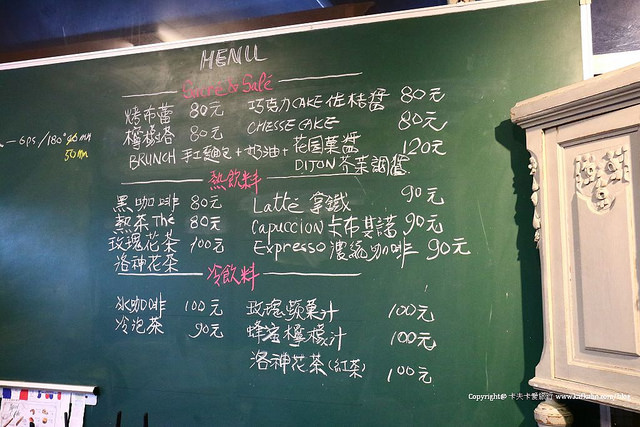 MENU
Sucré & Salé
烤布蕾 80元 巧克力CAKE佐桔醬 80元
檸檬塔 80元 CHESSE CAKE 80元
BRUNCH 手工麵包+奶油+花園菓醬 120元
DIJON 芥茉調醬
6ps/180° 45mm
50mm
熱飲料
黑咖啡 80元 Latté 拿鐵 90元
熱茶 Thé 80元 Capuccion 卡布其諾 90元
玫瑰花茶 100元 Expresso 濃縮咖啡 90元
洛神花茶
冷飲料
冰咖啡 100元 玫瑰蘋菓汁 100元
冷泡茶 90元 蜂蜜檸檬汁 100元
洛神花茶(紅茶) 100元
Copyright@ 卡夫卡愛旅行 www.kafkalin.com/blog